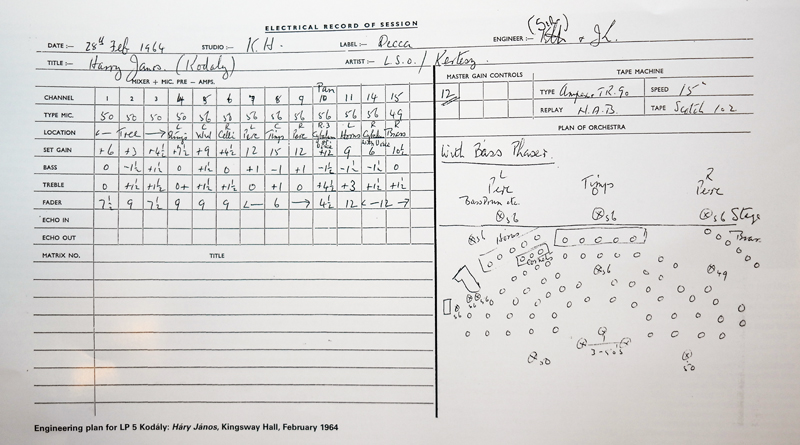 ELECTRICAL RECORD OF SESSION
DATE :- 28th Feb 1964 STUDIO :- K.H. LABEL :- Decca ENGINEER :- & J.L.
TITLE :- Harry Janos (Kodaly) ARTIST :- L.S.O. / Kertesz
MIXER + MIC. PRE - AMPS.
CHANNEL 1 2 3 4 5 6 7 8 9 Pan 10 11 14 15
TYPE MIC. 50 50 50 50 56 50 56 56 56 56 56 56 49
LOCATION ← Tree → L C R Celli L Perc C Timps R Perc L Horns R R Brass
SET GAIN +6 +3 +4½ +9 +4½ 12 15 12 +12 9 6 10½
BASS 0 -1½ +1½ 0 +1½ 0 +1 -1 +1 -1½ -1½ -1½ 0
TREBLE 0 +1½ +1½ 0+ +1½ +1½ 0 +1 0 +4½ +3 +1½ +1½
FADER 7½ 9 7½ 9 9 9 ← 6 → 4½ 12 ← 12 →
ECHO IN
ECHO OUT
MATRIX NO. TITLE
MASTER GAIN CONTROLS
12
TAPE MACHINE
TYPE Ampex TR.90 SPEED 15"
REPLAY N.A.B. TAPE Scotch 102
PLAN OF ORCHESTRA
With Bass Phaser.
L Perc Timps R Perc
Bass Drum etc.
56 56 56 Stage
56 Horns Brass
Cornets
56 49
56 56 56
3-50's
50 50
Engineering plan for LP 5 Kodály: Háry János, Kingsway Hall, February 1964